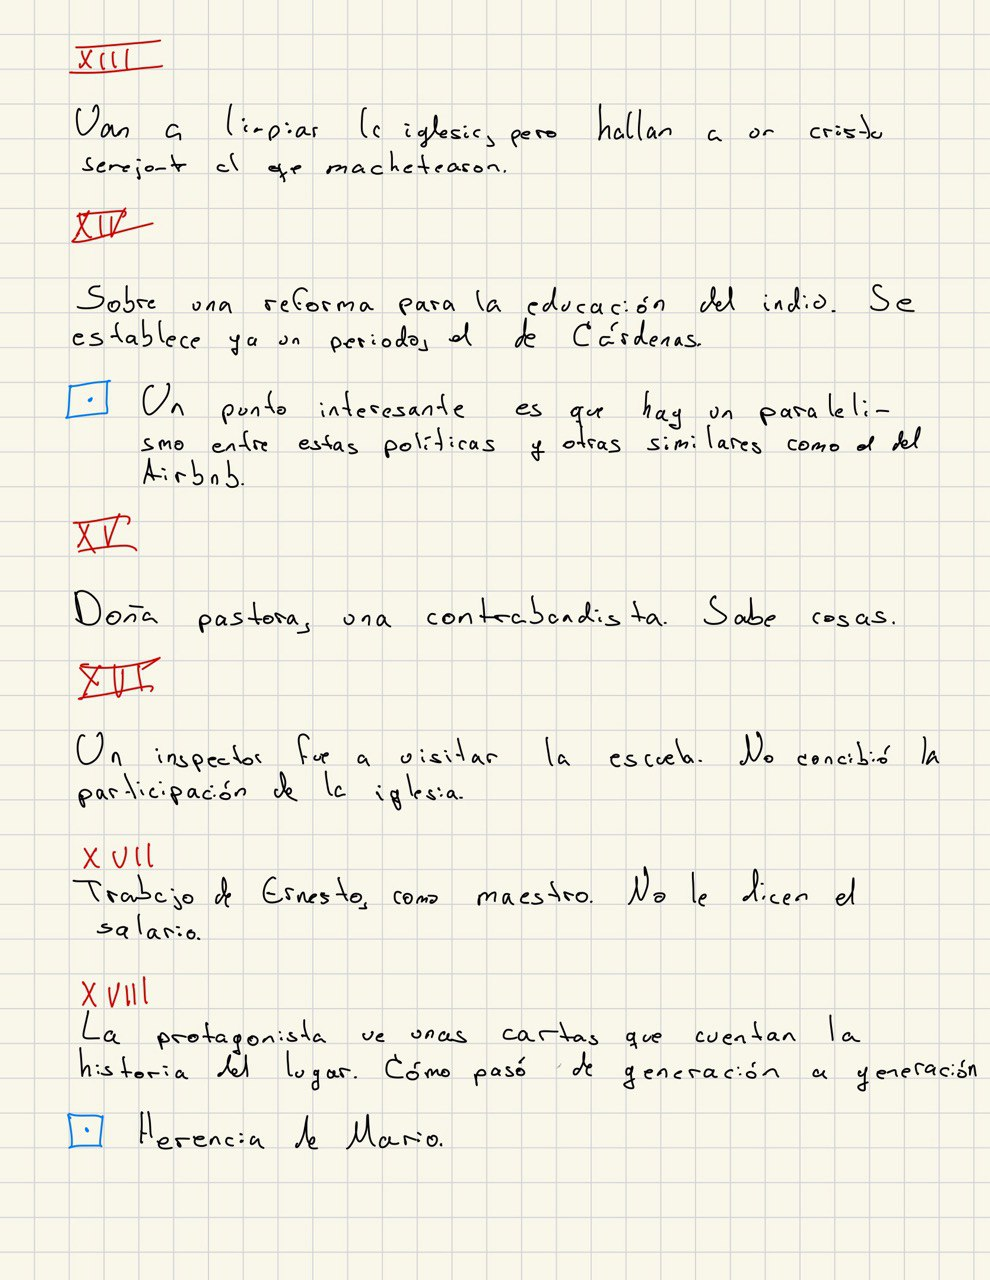 XIII
Van a limpiar la iglesia, pero hallan a un cristo
semejante al que machetearon.
XIV
Sobre una reforma para la educación del indio. Se
establece ya un periodo, el de Cárdenas.
Un punto interesante es que hay un paraleli-
smo entre estas políticas y otras similares como el del
Airbnb.
XV
Doña pastora, una contrabandista. Sabe cosas.
XVI
Un inspector fue a visitar la escuela. No concibió la
participación de la iglesia.
XVII
Trabajo de Ernesto, como maestro. No le dicen el
salario.
XVIII
La protagonista ve unas cartas que cuentan la
historia del lugar. Cómo pasó de generación a generación
Herencia de Mario.